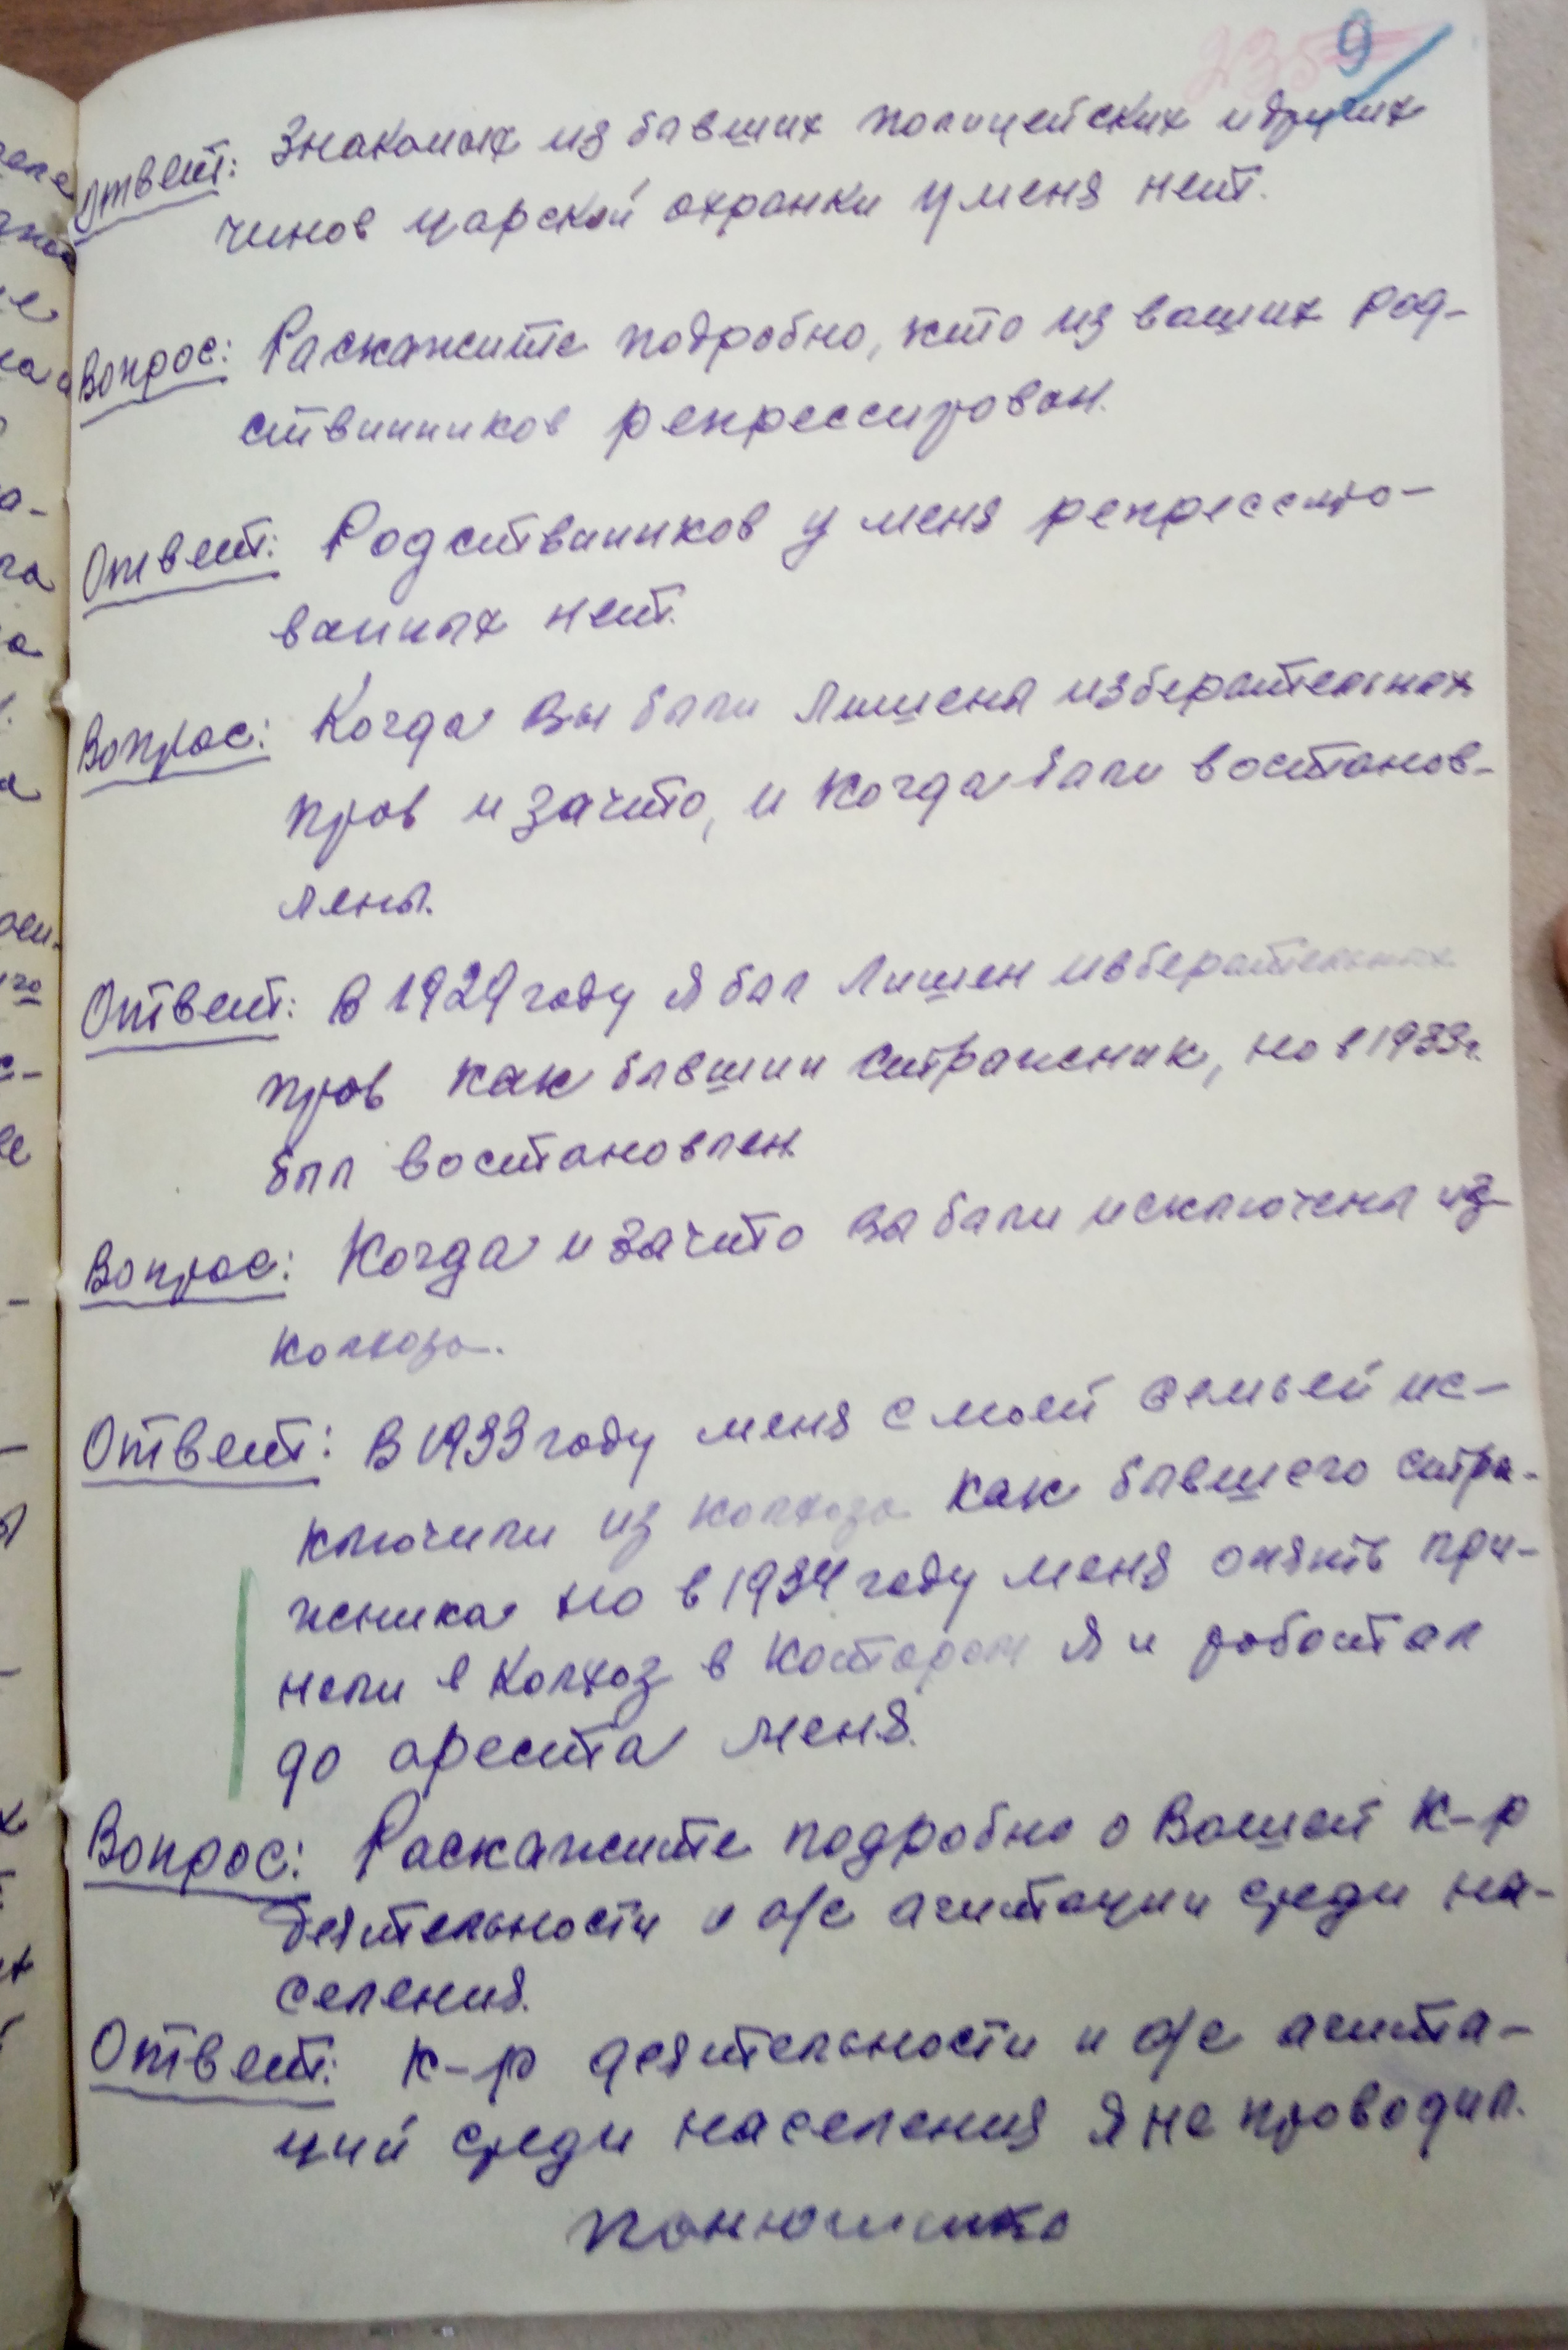 9
Ответ: Знакомых из бывших полицейских и других
чинов царской охранки у меня нет.
Вопрос: Раскажите подробно, кто из ваших род-
ствинников репрессирован.
Ответ: Родствинников у меня репрессиро-
ванных нет.
Вопрос: Когда вы были лишены изберательных
прав и за что, и когда были востанов-
лены.
Ответ: В 1929 году я был лишен изберательных
прав как бывший стражник, но в 1933 г.
был востановлен.
Вопрос: Когда и за что вы были исключены из
колхоза.
Ответ: В 1933 году меня с моей семьей ис-
ключили из колхоза как бывшего стра-
жника но в 1934 году меня опять при-
няли в колхоз в котором я и работал
до ареста меня.
Вопрос: Раскажите подробно о Вашей к-р
деятельности и а/с агитации среди на-
селения.
Ответ: К-р деятельности и а/с агита-
ций среди населения я не проводил.